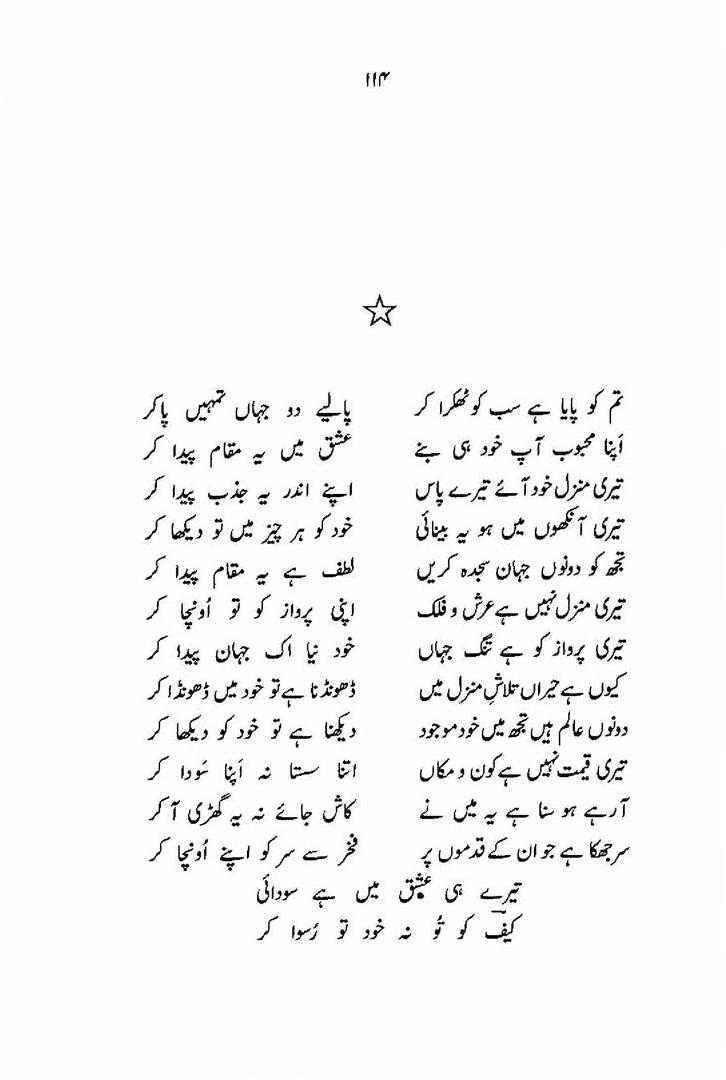 ۱۱۴
تم کو پایا ہے سب کو ٹھکرا کر پالیے دو جہاں تمہیں پا کر
اَپنا محبوب آپ خود ہی بنے عشق میں یہ مقام پیدا کر
تیری منزل خود آئے تیرے پاس اپنے اندر یہ جذب پیدا کر
تیری آنکھوں میں ہو یہ بینائی خود کو ہر چیز میں تو دیکھا کر
تجھ کو دونوں جہان سجدہ کریں لطف ہے یہ مقام پیدا کر
تیری منزل نہیں ہے عرش و فلک اپنی پرواز کو تو اُونچا کر
تیری پرواز کو ہے تنگ جہاں خود نیا اک جہان پیدا کر
کیوں ہے حیراں تلاشِ منزل میں ڈھونڈنا ہے تو خود میں ڈھونڈا کر
دونوں عالم ہیں تجھ میں خود موجود دیکھنا ہے تو خود کو دیکھا کر
تیری قیمت نہیں ہے کون و مکاں اتنا سستا نہ اَپنا سَودا کر
آ رہے ہو سنا ہے یہ میں نے کاش جائے نہ یہ گھڑی آ کر
سر جھکا ہے جو ان کے قدموں پر فخر سے سر کو اپنے اُونچا کر
تیرے ہی عشق میں ہے سودائی
کیفؔ کو تُو نہ خود تو رُسوا کر